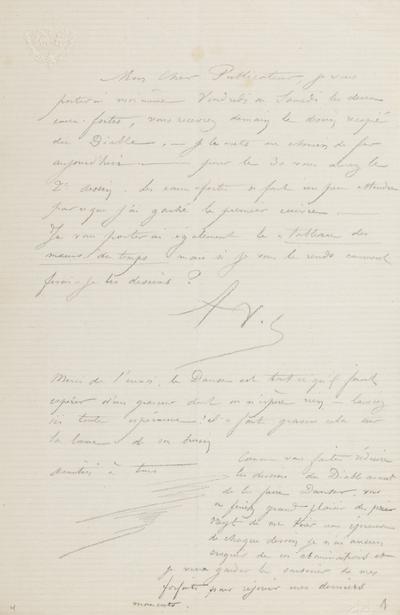 Mon Cher Publicateur, je vous
porterai moi-même Vendredi ou Samedi les deux
eaux-fortes, vous recevrez demain le dessin recopié
du Diable. — Je le mets au chemin de fer
aujourd'hui — pour le 30 vous aurez le
2e dessin. Les eaux fortes se font un peu attendre
parceque j'ai gâché le premier cuivre.
Je vous porterai également le Tableau des
mœurs du temps mais si je vous le rends comment
ferai-je les dessins ?
Merci de l'envoi, la Danse est tout ce qu'il faut
espérer d'un graveur dont on n'espère rien — laissez
ici toute espérance ! il a fait graver cela sur
la lame de son burin
amitiés à tous
Comme vous faites réduire
les dessins du Diable avant
de les faire graver, vous
me feriez grand plaisir de
de me tirer une épreuve
de chaque dessin, je n'ai aucun
croquis de ces abominations et
je veux garder le souvenir de mes
forfaits pour réjouir mes derniers
moments.